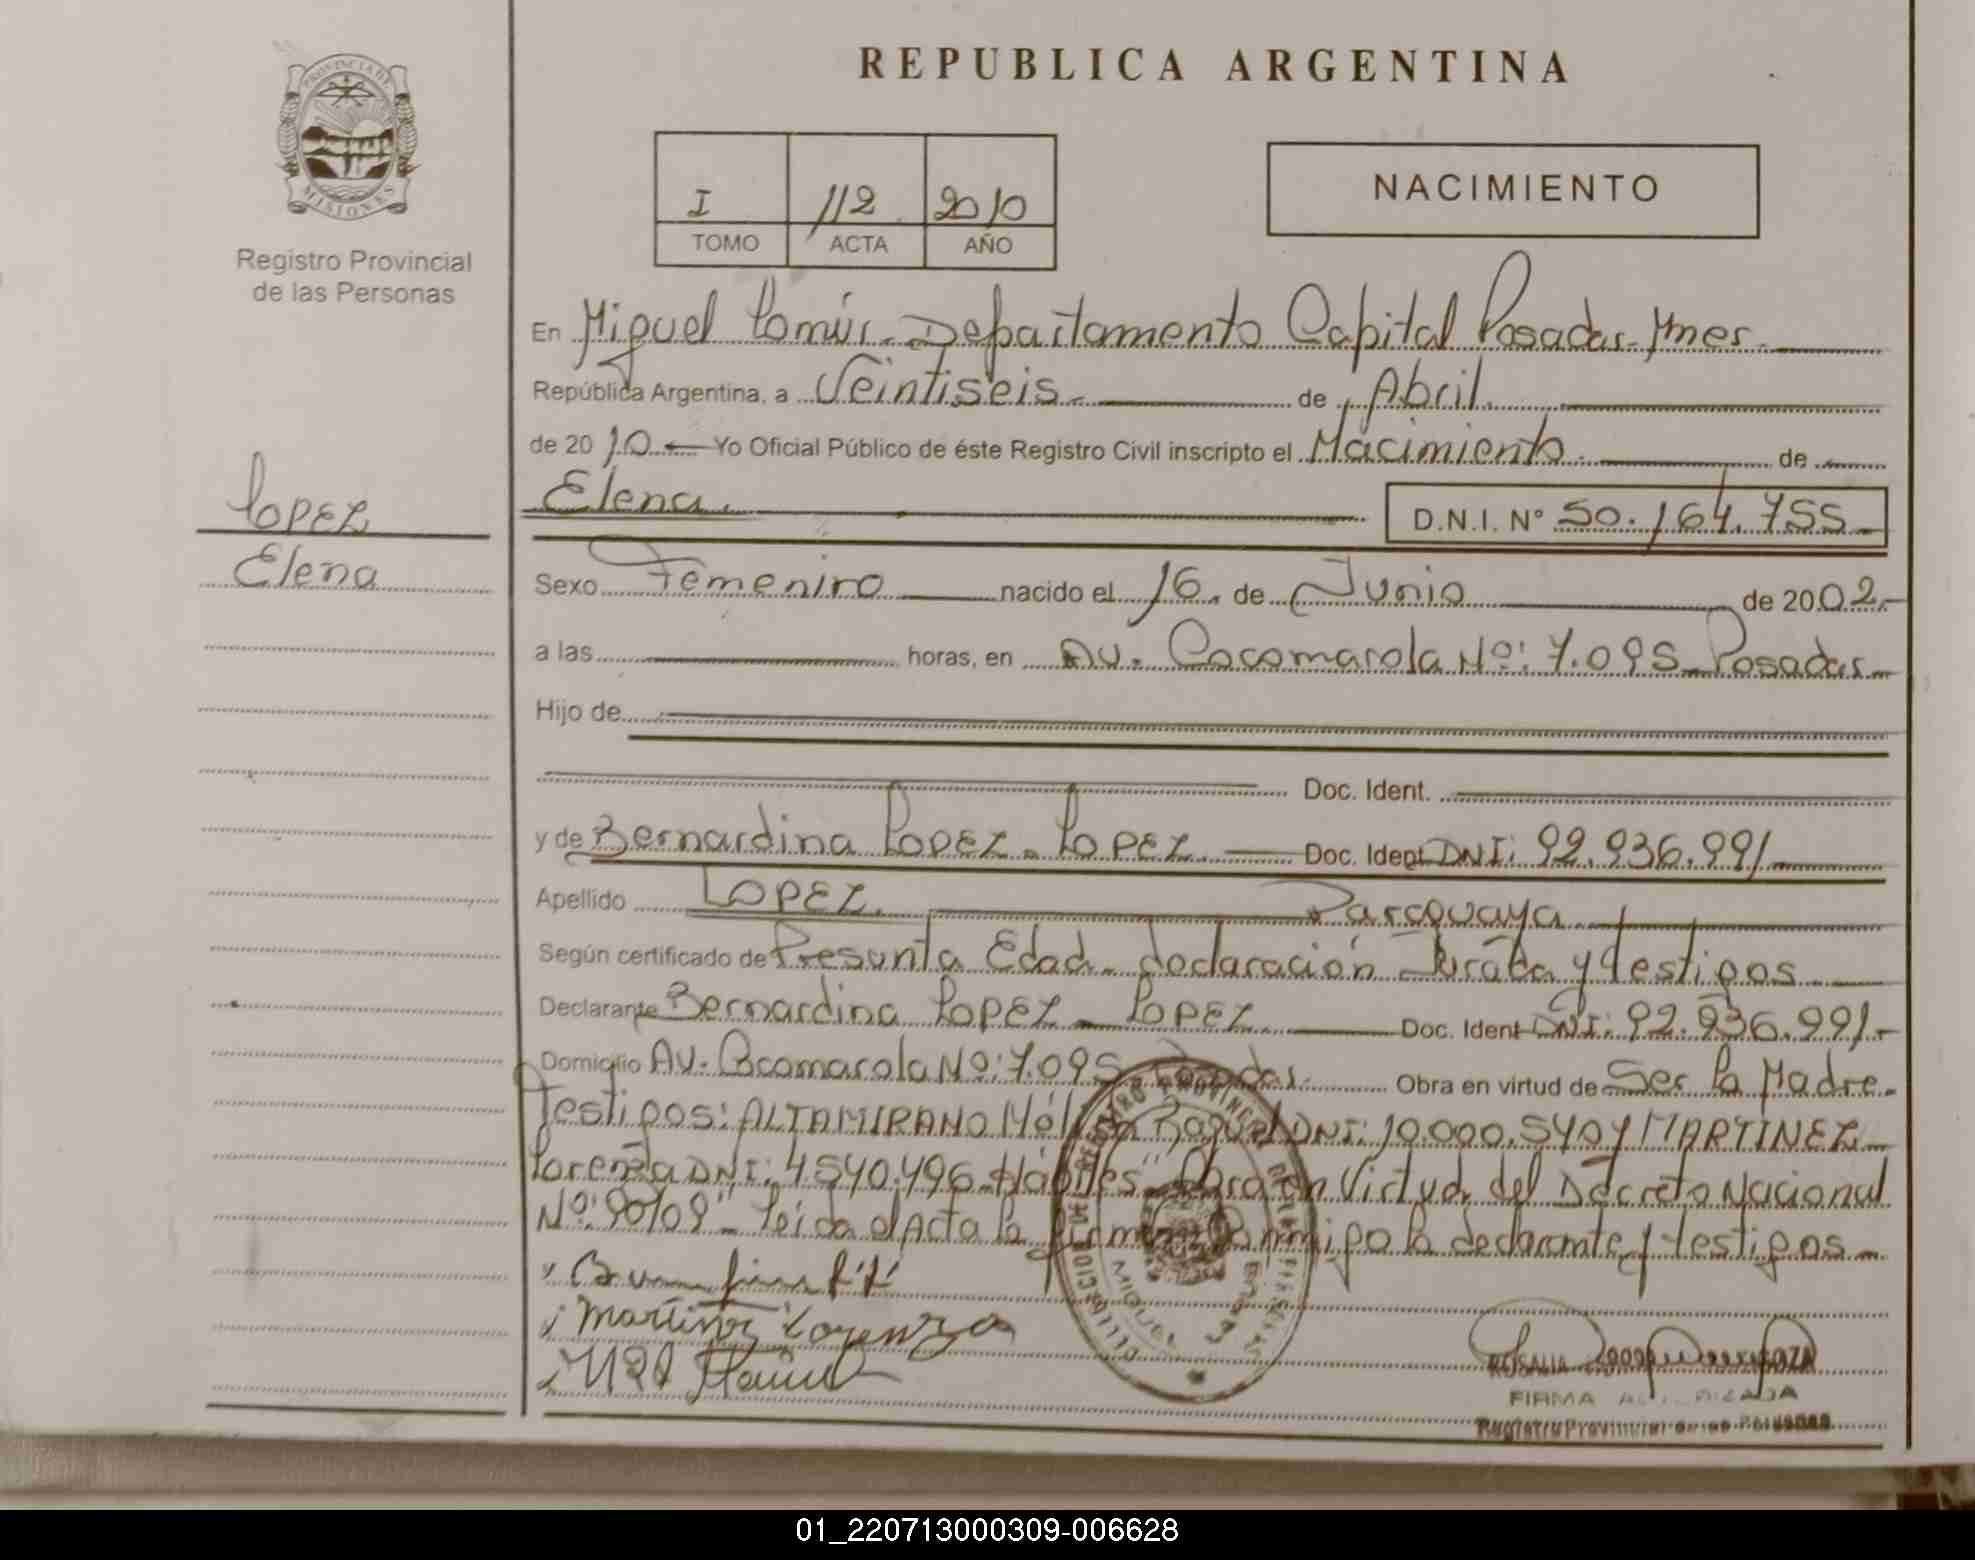 REPUBLICA ARGENTINA
PROVINCIA DE
MISIONES
Registro Provincial
de las Personas
I 112 2010
TOMO ACTA AÑO
NACIMIENTO
En Miguel Lanús - Departamento Capital Posadas - Mnes.
República Argentina, a Veintiseis de Abril
de 2010 Yo Oficial Público de éste Registro Civil inscripto el Nacimiento de
Elena. D.N.I. N° 50.164.755
LOPEZ
Elena
Sexo Femenino nacido el 16. de Junio de 2002.-
a las horas, en AV. Cocomarola Nº: 7.095 - Posadas
Hijo de
Doc. Ident.
y de Bernardina LOPEZ - LOPEZ. Doc. Ident DNI: 92.936.991
Apellido LOPEZ. Paraguaya
Según certificado de Presunta Edad - declaración Jurada y testigos
Declarante Bernardina LOPEZ - LOPEZ Doc. Ident DNI: 92.936.991.-
Domicilio AV. Cocomarola Nº: 7.095 Posadas. Obra en virtud de Ser la Madre.
Testigos: ALTAMIRANO Raquel DNI: 10.000.540 y MARTINEZ
Lorenza DNI: 4.540.496 Hábiles" Obra en Virtud del Decreto Nacional
Nº: 90/09" - Leída el Acta la firman conmigo la declarante y testigos
Martinez Lorenza
ROSALIA
FIRMA AUTORIZADA
Registro Provincial de las Personas
01_220713000309-006628